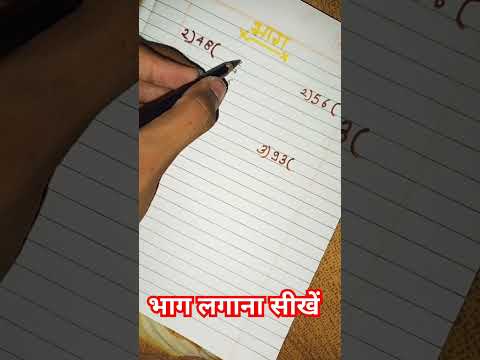 भाग
2)48(
2)56(
3(
3)93(
भाग लगाना सीखें